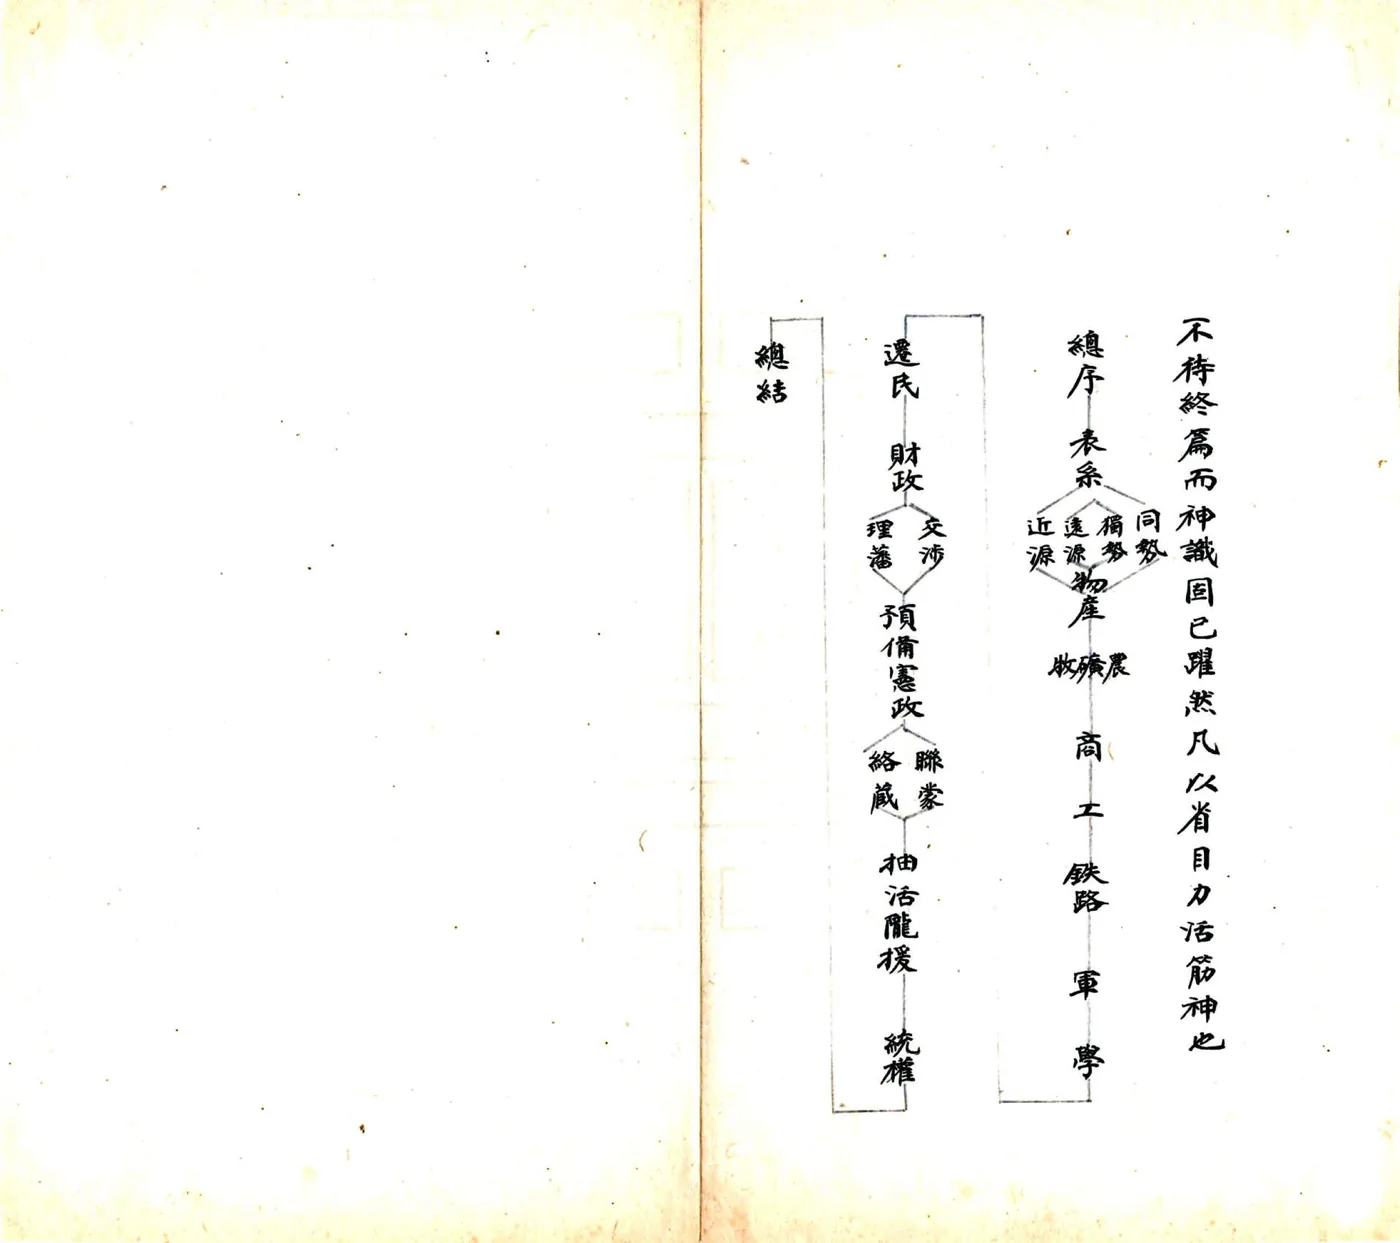 不待終篇而神識固已躍然凡以省目力活筋神也
總序
表系
同勢
獨勢
遠源
近源
物產
農礦牧
商
工
鉄路
軍
學
遷民
財政
交涉
理藩
預備憲政
聯蒙
絡藏
抽活隴援
統權
總結